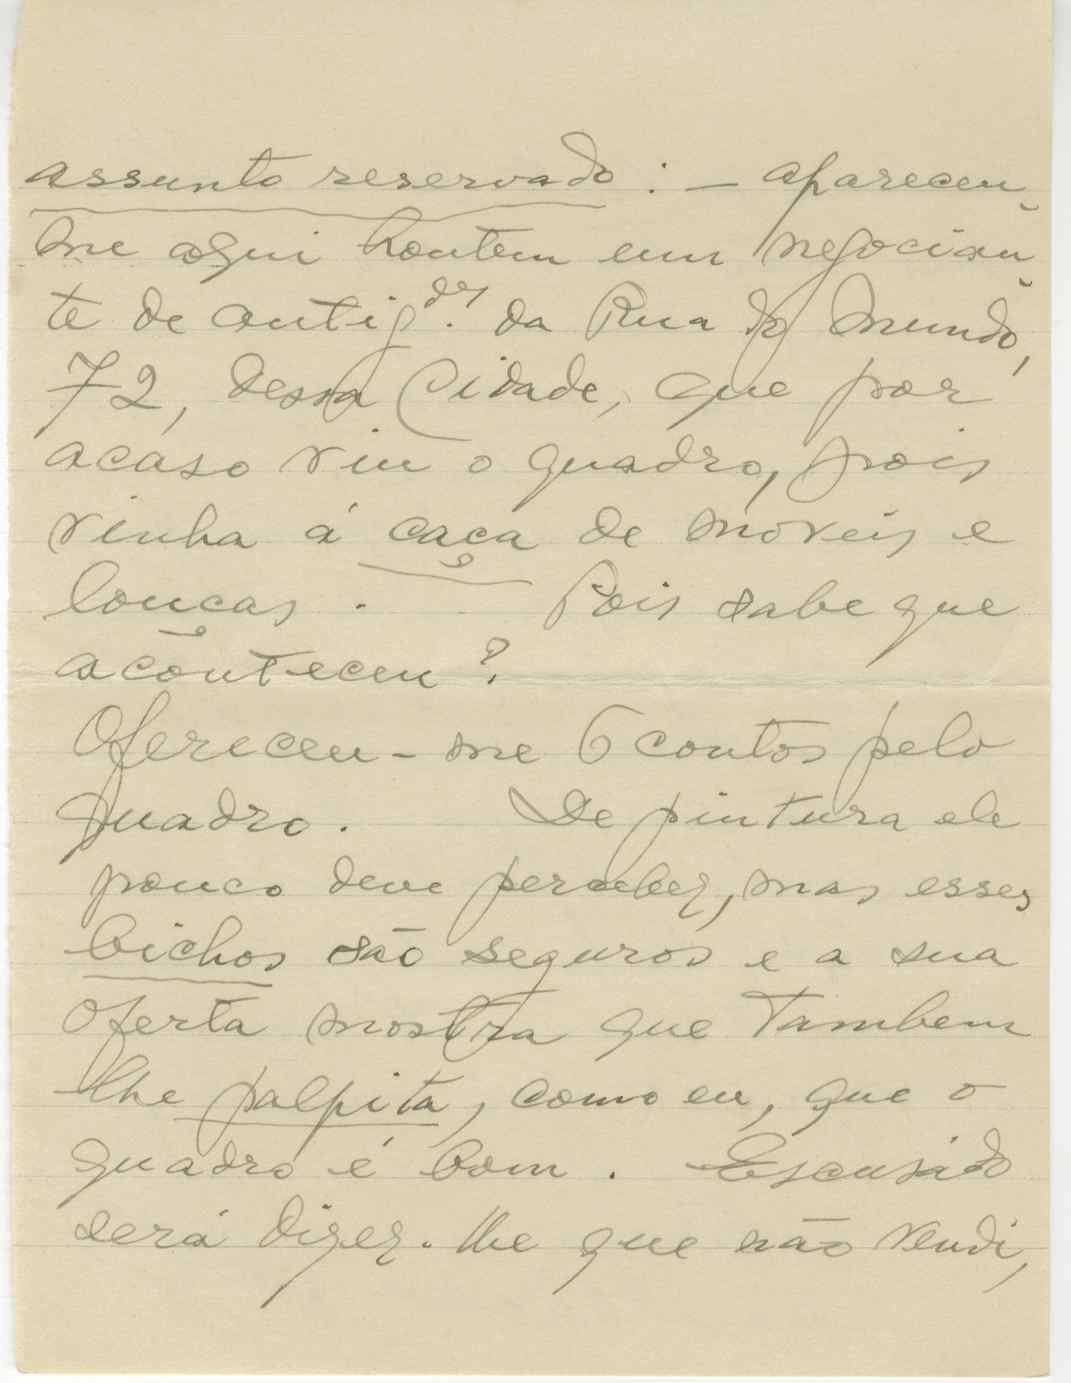 assunto reservado : — apareceu-
me aqui hontem um negocian-
te de antig.des da Rua do Mundo,
72, dessa Cidade, que por
acaso viu o quadro, pois
vinha á caça de móveis e
louças . Pois sabe que
aconteceu ?
Ofereceu-me 6 contos pelo
quadro . De pintura ele
pouco deve perceber, mas esses
bichos são seguros e a sua
oferta mostra que tambem
lhe palpita, como eu, que o
quadro é bom . Escusado
será dizer-lhe que não vendi,